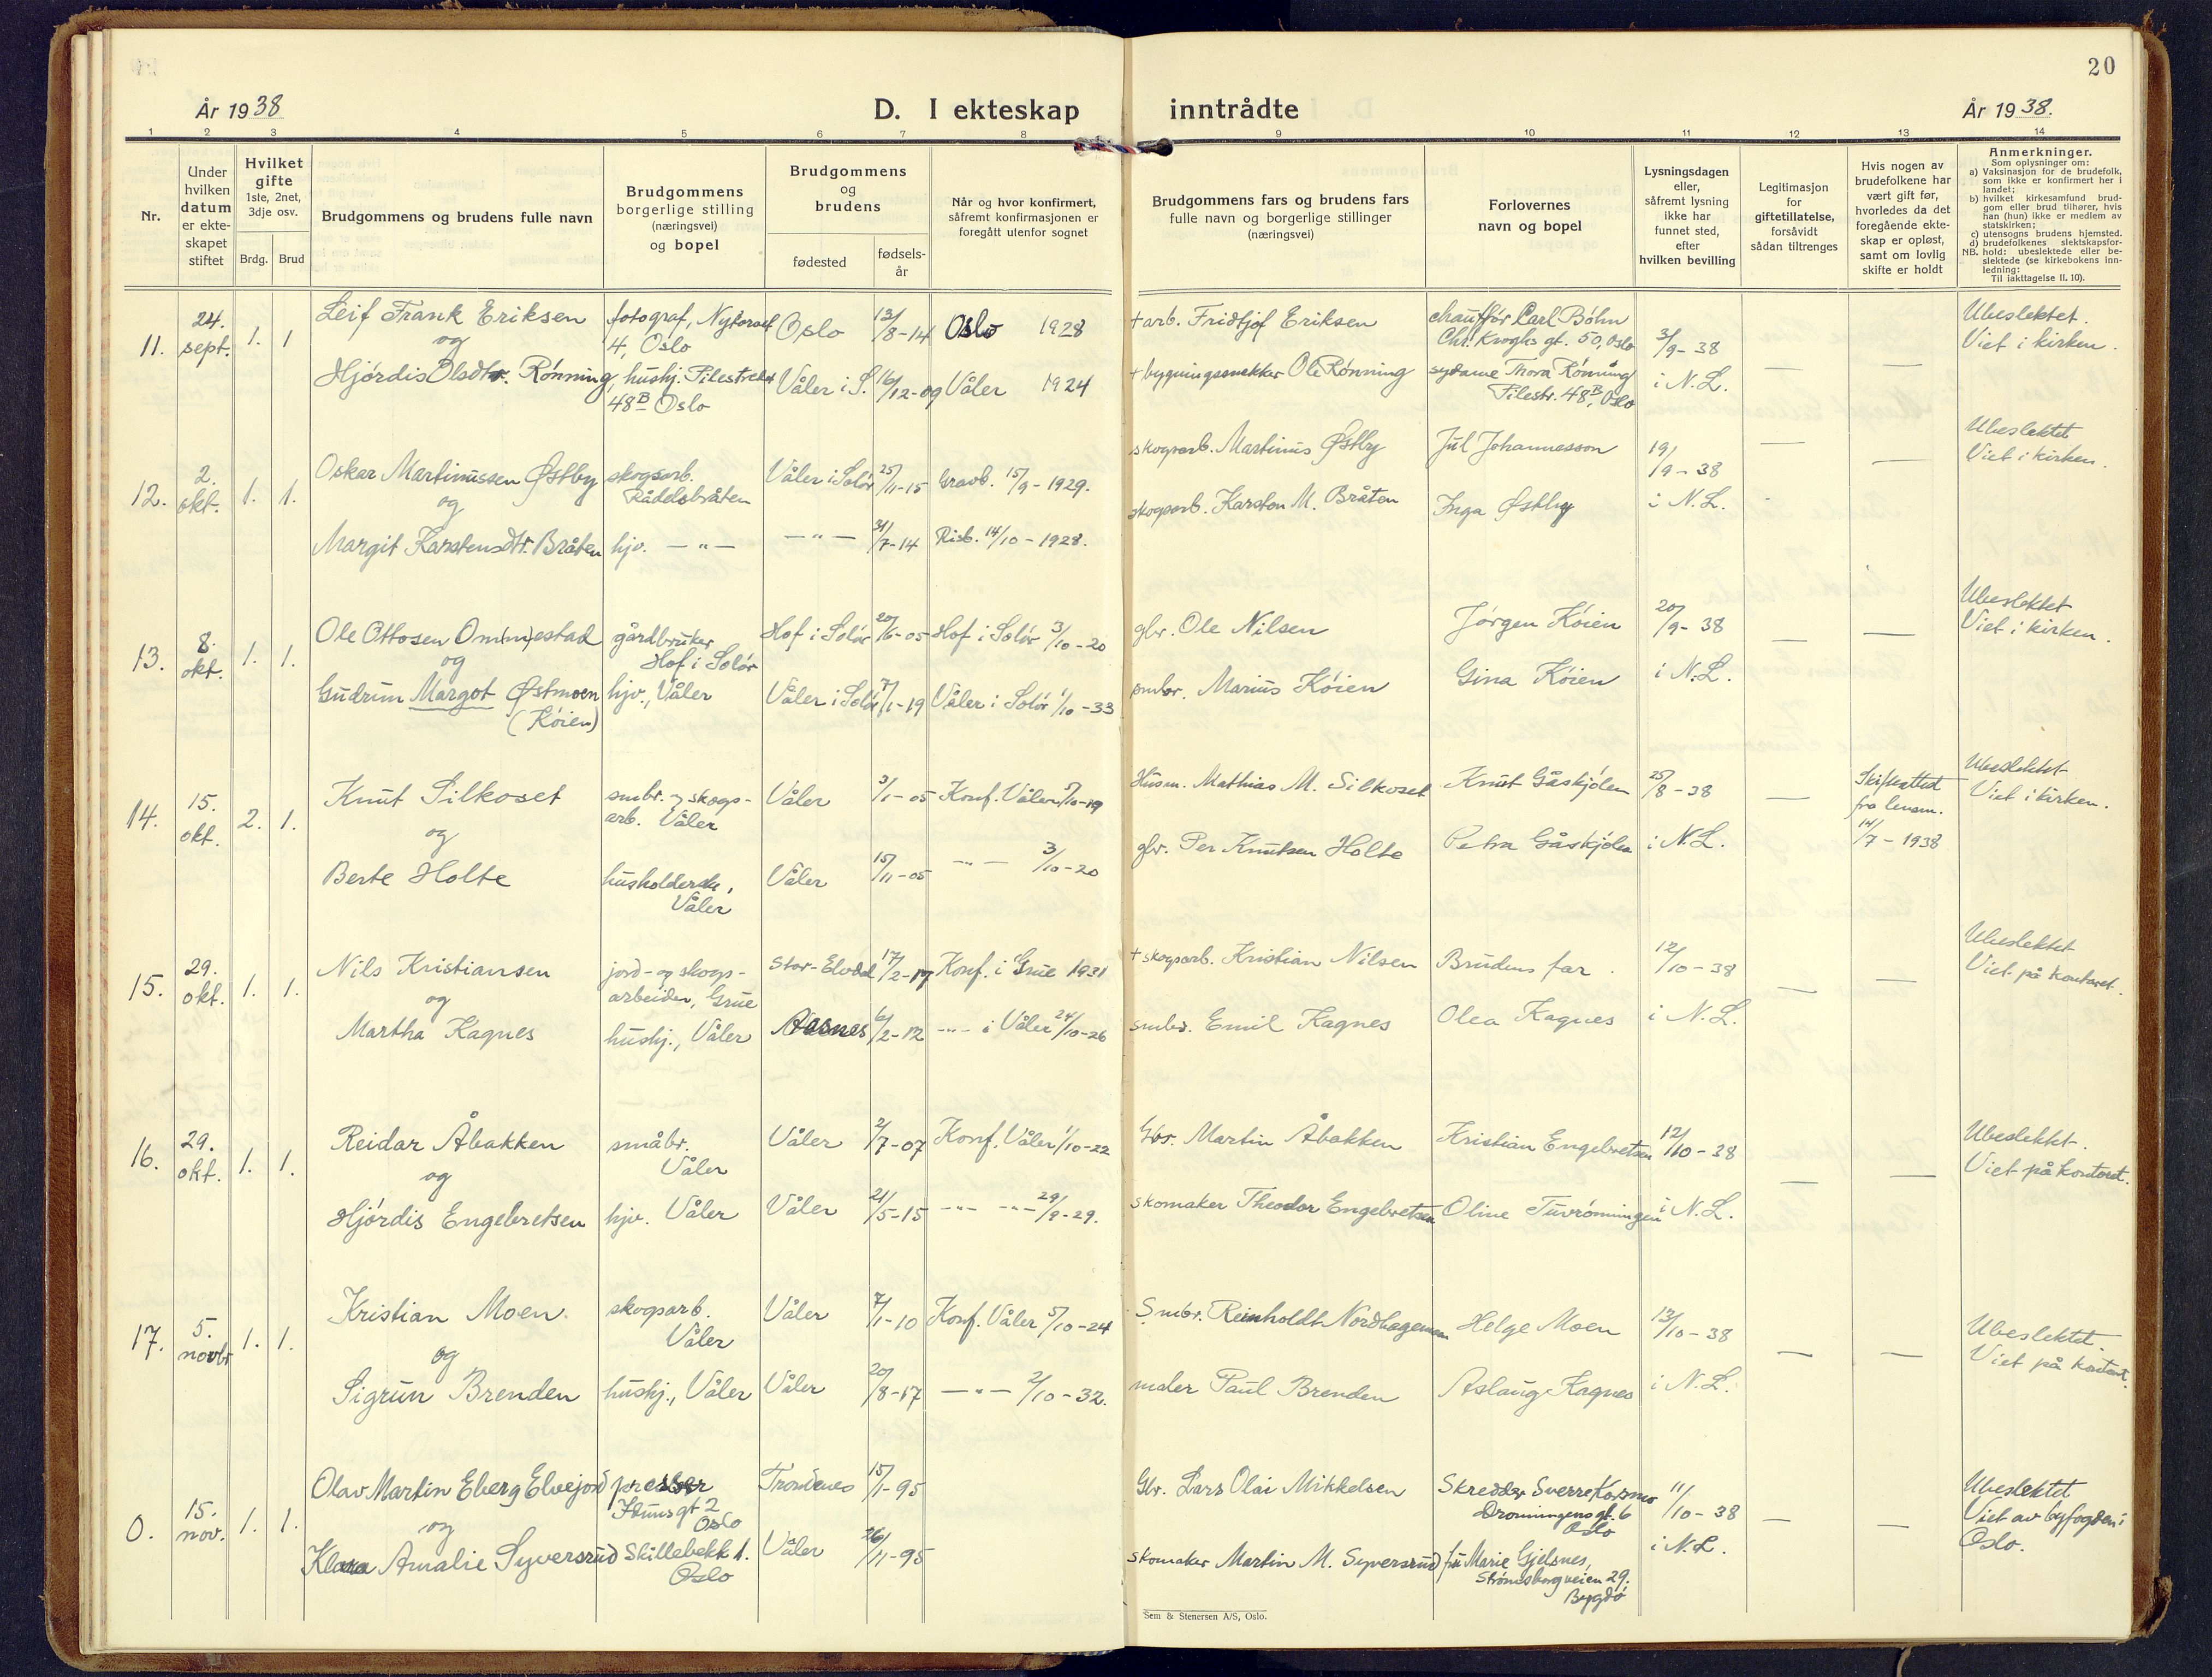 20
År 1938
D. I ekteskap inntrådte
År 1938.
1 2 3 4 5 6 7 8 9 10 11 12 13 14
Nr.
Under hvilken datum er ekteskapet stiftet
Hvilket gifte
1ste, 2net, 3dje osv.
Brdg. Brud
Brudgommens og brudens fulle navn
Brudgommens borgerlige stilling (næringsvei) og bopel
Brudgommens og brudens
fødested
fødselsår
Når og hvor konfirmert, såfremt konfirmasjonen er foregått utenfor sognet
Brudgommens fars og brudens fars fulle navn og borgerlige stillinger (næringsvei)
Forlovernes navn og bopel
Lysningsdagen eller, såfremt lysning ikke har funnet sted, efter hvilken bevilling
Legitimasjon for giftetillatelse, forsåvidt sådan tiltrenges
Hvis nogen av brudefolkene har vært gift før, hvorledes da det foregående ekteskap er opløst, samt om lovlig skifte er holdt
Anmerkninger.
Som oplysninger om:
a) Vaksinasjon for de brudefolk, som ikke er konfirmert her i landet;
b) hvilket kirkesamfund brudgom eller brud tilhører, hvis han (hun) ikke er medlem av statskirken;
c) utensogns brudens hjemsted.
d) brudefolkenes slektskapsforhold: ubeslektede eller beslektede (se kirkebokens innledning:
NB. Til iakttagelse II. 10).
11. 24. sept. 1. 1 Leif Frank Eriksen fotograf, Nytorvet 4, Oslo Oslo 13/8-14 Oslo 1928 + arb. Fridtjof Eriksen chauffør Carl Bøhn Chr. Kroghs gt. 50, Oslo 3/9-38 — — Ubeslektet. Viet i kirken.
og
Hjørdis Olsdtr. Rønning, hushj. Pilestredet 48B Oslo Våler i S. 16/12-09 Våler 1924 + bygningssnekker Ole Rønning sydame Thora Rønning Pilestr. 48B, Oslo i N.L.
12. 2. okt. 1. 1. Oskar Martinussen Østby skogsarb. Råddelsbråten Våler i Solør 25/11-15 Gravb. 15/9-1929. skogsarb. Martinus Østby Jul Johannesson 19/9-38 — — Ubeslektet Viet i kirken.
og
Margit Karstensdtr. Bråten hjv. —"— —"— 31/7-14 Risb. 14/10-1928. skogsarb. Karsten M. Bråten Inga Østby i N.L.
13. 8. okt. 1. 1. Ole Ottosen Om(m)estad gårdbruker Hof i Solør Hof i Solør 20/6-05 Hof i Solør 3/10-20 gbr. Ole Nilsen Jørgen Køien 20/9-38 — — Ubeslektet Viet i kirken.
og
Gudrun Margot Østmoen (Køien) hjv., Våler Våler i Solør 7/1-19 Våler i Solør 1/10-33 smbr. Marius Køien Gina Køien i N.L.
14. 15. okt. 2. 1. Knut Silkoset smbr. og skogsarb. Våler Våler 3/1-05 Konf. Våler 5/10-19 Husm. Mathias M. Silkoset Knut Gåskjølen 25/8-38 — Skifteattest fra lensm. 14/7-1938 Ubeslektet Viet i kirken.
og
Berte Holte husholderske, Våler Våler 15/11-05 —"— 3/10-20 gbr. Per Knutsen Holte Petra Gåskjølen i N.L.
15. 29. okt. 1. 1. Nils Kristiansen jord- og skogsarbeider, Grue Stor-Elvdal 17/2-17 Konf. i Grue 1931 + skogsarb. Kristian Nilsen Brudens far. 12/10-38 — — Ubeslektet Viet på kontoret.
og
Martha Kagnes hushj., Våler Aasnes 6/2-12 —"— i Våler 24/10-26 smbr. Emil Kagnes Olea Kagnes i N.L.
16. 29. okt. 1. 1. Reidar Åbakken småbr. Våler Våler 2/7-07 Konf. Våler 1/10-22 Gbr. Martin Åbakken Kristian Engebretsen 12/10-38 — — Ubeslektet. Viet på kontoret.
og
Hjørdis Engebretsen hjv. Våler Våler 21/5-15 —"— —"— 29/9-29. skomaker Theodor Engebretsen Oline Tuvrønningen i N.L.
17. 5. novbr 1. 1. Kristian Moen. skogsarb. Våler Våler 7/1-10 Konf. Våler 5/10-24 Smbr. Reinholdt Nordhagemoen Helge Moen 13/10-38 — — Ubeslektet. Viet på kontoret.
og
Sigrun Brenden hushj., Våler Våler 20/8-17 —"— 2/10-32. maler Paul Brenden Aslaug Kagnes i N.L.
0. 15. nov. 1. 1. Olav Martin Eberg Elvejord presser Iduns gt 2 Oslo Trondenes 15/1-95 Gbr. Lars Olai Mikkelsen Skredder Sverre Korsmo Dronningens gt. 6 Oslo 11/10-38 — — Ubeslektet Viet av byfogden i Oslo.
og
Klara Amalie Syversrud Skillebekk 1. Oslo Våler 26/11-95 skomaker Martin M. Syversrud fru Marie Gjelsnes, Strømsborgveien 29. Bygdø i N.L.
Sem & Stenersen A/S, Oslo.